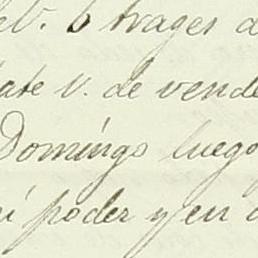 b trages d
ate v. de vende
Domingo luego
i poder y en